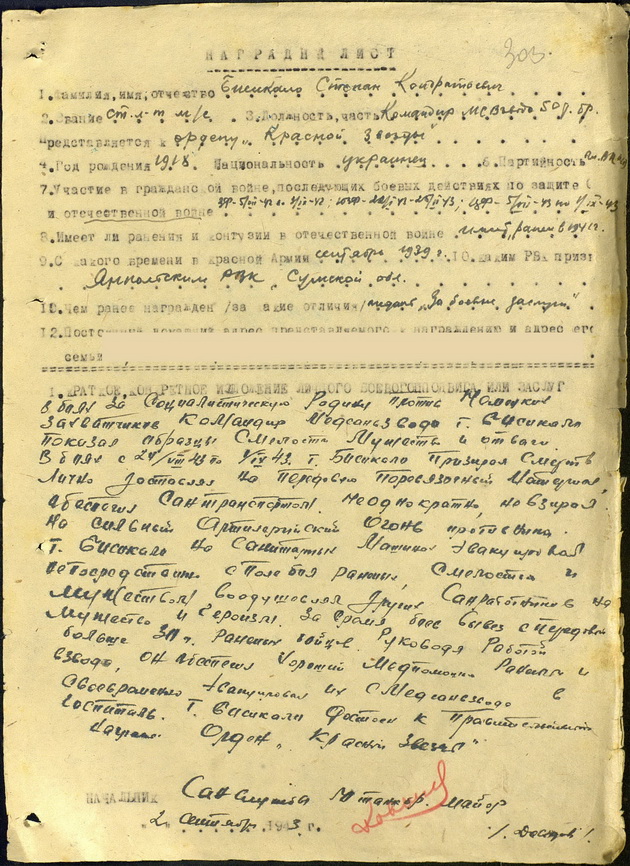 303.
НАГРАДНЫЙ ЛИСТ
1. Фамилия, имя, отчество Бисикало Степан Кондратович
2. Звание ст. л-т м/с 3. Должность, часть Командир МСВзвода 50 д. бр.
представляется к ордену "Красной Звезды"
4. Год рождения 1918 Национальность украинец 6. Партийность
7. Участие в гражданской войне, последующих боевых действиях по защите
и отечественной войне
8. Имеет ли ранения и контузии в отечественной войне ранен в 1941 г.
9. С какого времени в Красной Армии сентябрь 1939 г. 10. Каким РВК призв
Ямпольским РВК, Сумской обл.
10. Чем ранее награжден /за какие отличия/ медаль "За боевые заслуги"
12. Постоянный домашний адрес представляемого к награждению и адрес его
семьи
1. КРАТКОЕ, КОНКРЕТНОЕ ИЗЛОЖЕНИЕ ЛИЧНОГО БОЕВОГО ПОДВИГА ИЛИ ЗАСЛУГ
В боях за Социалистическую Родину против Немецких
захватчиков Командир Медсанвзвода т. Бисикало
показал образцы Смелости Мужества и отваги.
В боях с 27/VIII 43 по 1/IX 43. т. Бисикало Призирая Смерть
Лично доставлял на передовую перевязочный Материал,
обеспечил Сантранспортом. Неоднократно, не взирая
на сильный Артилерийский Огонь противника
т. Бисикало на Санитарных Машинах эвакуировал
непосредственно с Поля боя раненых, Смелостью и
Мужеством воодушевлял других Санработников на
Мужество и Героизм. За время боев вывез с передовой
больше раненых бойцов. Руководя Работой
взвода, он обеспечил хорошей Медпомощью Раненых и
своевременно эвакуировал их с Медсанвзвода в
госпиталь. Т. Бисикало Достоин к Правительственной
награде Орден "Красной Звезды"
НАЧАЛЬНИК Санслужбы танкбр. Майор
2 сентябрь 1943 г.